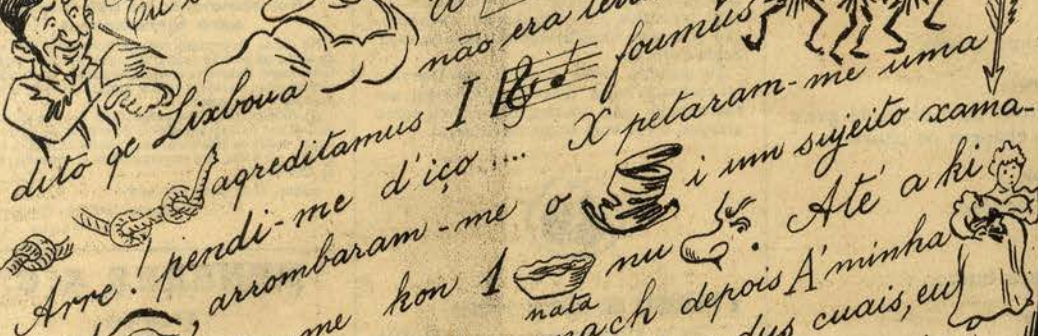 Eu
dito qe Lixboua não era
agreditamus I foumus
Arre! pendi-me d'iço .... X petaram-me uma
arrombaram-me o i um sujeito xama-
me kon 1 nata nu . Até a ki
ach depois A' minha
dus cuais, eu